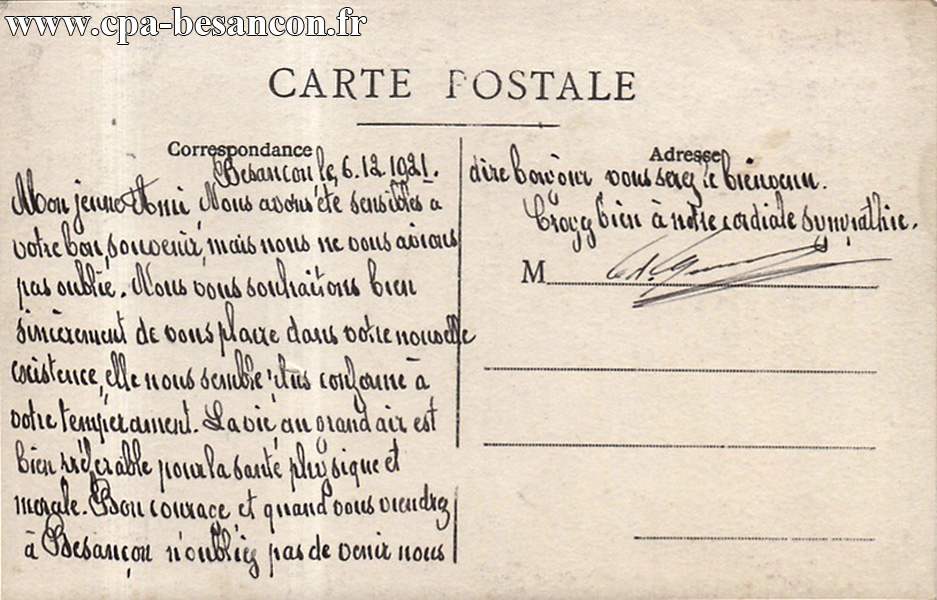 www.cpa-besancon.fr
CARTE POSTALE
Correspondance
Besancon le, 6.12.1921.
Mon jeune Ami Nous avons été sensibles à
votre bon souvenir, mais nous ne vous avions
pas oublié. Nous vous souhaitions bien
sincèrement de vous placer dans votre nouvelle
existence, elle nous semble plus conforme à
votre tempérament. La vie au grand air est
bien préférable pour la santé physique et
morale. Bon courage et quand vous viendrez
à Besançon n'oubliez pas de venir nous
Adresse
dire bonjour vous serez le bienvenu.
Croyez bien à notre cordiale sympathie.
M